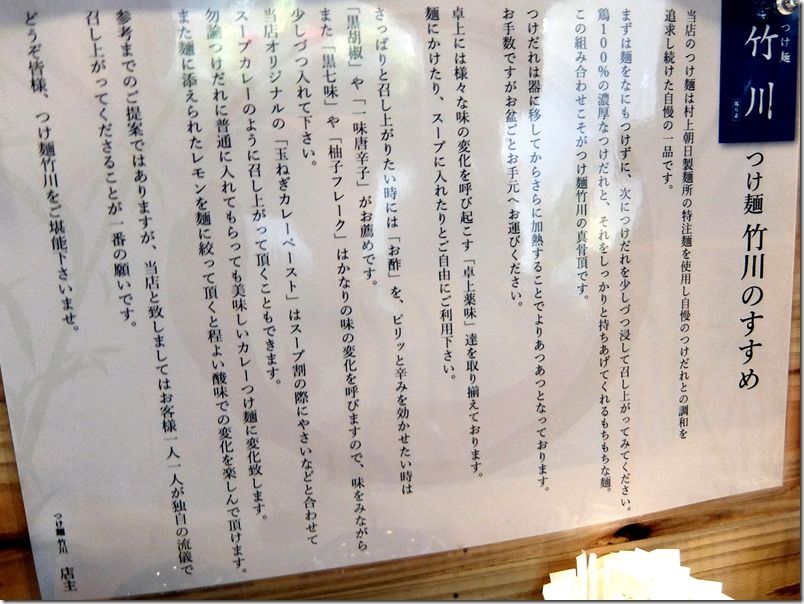 つけ麺
竹川
つけ麺 竹川のすすめ
当店のつけ麺は村上朝日製麺所の特注麺を使用し自慢のつけだれとの調和を
追求し続けた自慢の一品です。
まずは麺をなにもつけずに、次につけだれを少しづつ浸して召し上がってみてください。
鶏100%の濃厚なつけだれと、それをしっかりと持ちあげてくれるもちもちな麺。
この組み合わせこそがつけ麺竹川の真骨頂です。
つけだれは器に移してからさらに加熱することでよりあつあつとなっております。
お手数ですがお盆ごとお手元へお運びください。
卓上には様々な味の変化を呼び起こす「卓上薬味」達を取り揃えております。
麺にかけたり、スープに入れたりとご自由にご利用下さい。
さっぱりと召し上がりたい時には「お酢」を、ピリッと辛みを効かせたい時は
「黒胡椒」や「一味唐辛子」がお薦めです。
また「黒七味」や「柚子フレーク」はかなりの味の変化を呼びますので、味をみながら
少しづつ入れて下さい。
当店オリジナルの「玉ねぎカレーペースト」はスープ割の際にやさいなどと合わせて
スープカレーのように召し上がって頂くこともできます。
勿論つけだれに普通に入れてもらっても美味しいカレーつけ麺に変化致します。
また麺に添えられたレモンを麺に絞って頂くと程よい酸味での変化を楽しんで頂けます。
参考までのご提案ではありますが、当店と致しましてはお客様一人一人が独自の流儀で
召し上がってくださることが一番の願いです。
どうぞ皆様、つけ麺竹川をご堪能下さいませ。
つけ麺 竹川 店主